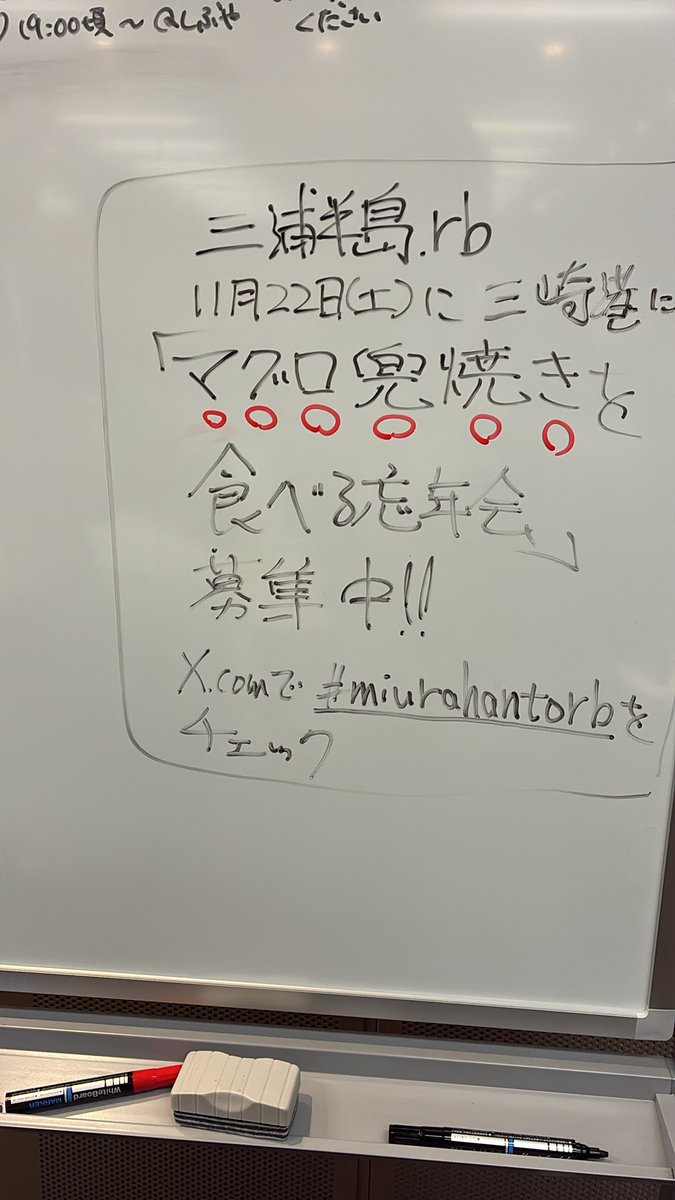 19:00頃〜
ください
三浦半島.rb
11月22日(土)に 三崎港に
「マグロ兜焼きを
食べる忘年会」
募集中!!
X.comで #miurahantorbを
チェック
WhiteBoard
MARKER